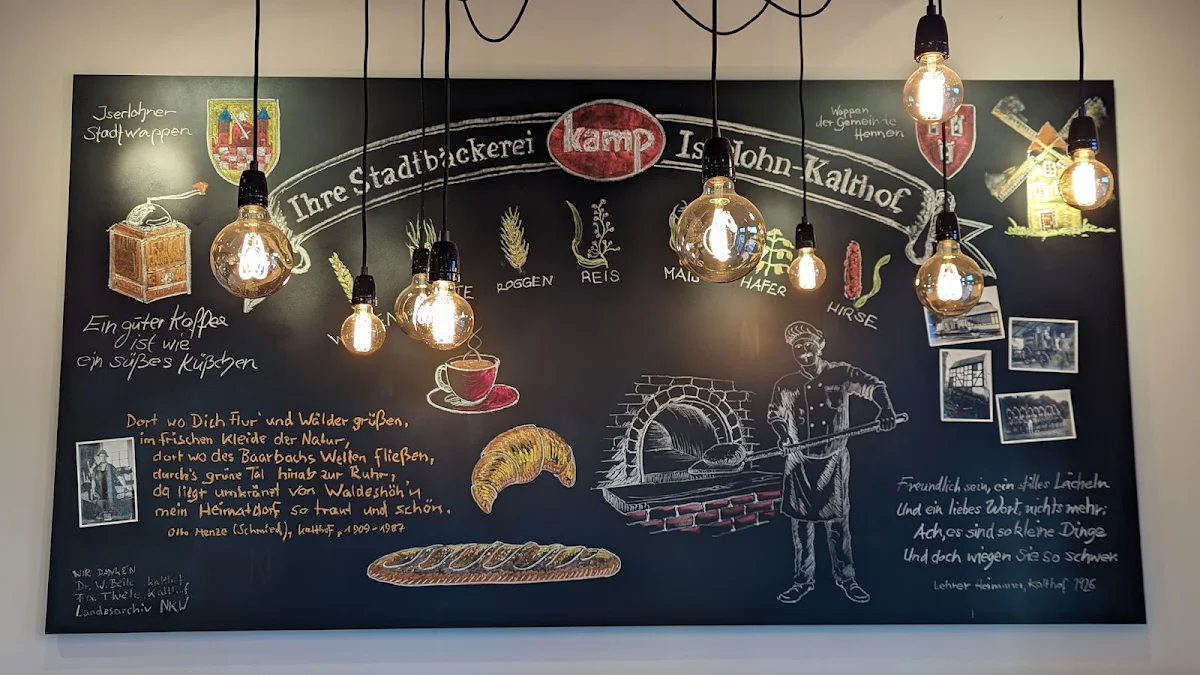 Iserlohner
Stadtwappen
Wappen
der Gemeinde
Hennen
Ihre Stadtbäckerei kamp Iserlohn-Kalthof
ROGGEN
REIS
MAIS
HAFER
HIRSE
Ein guter Kaffee
ist wie
ein süßes Küßchen
Dort wo Dich Flur' und Wälder grüßen,
im frischen Kleide der Natur,
dort wo des Baarbachs Wellen fließen,
durch's grüne Tal hinab zur Ruhr,
da liegt umkränzt von Waldeshöh'n
mein Heimatdorf so traut und schön.
Otto Menze (Schmied), Kalthof, 1909-1987
Freundlich sein, ein stilles Lächeln
Und ein liebes Wort, nichts mehr.
Ach, es sind so kleine Dinge
Und doch wiegen sie so schwer.
Lehrer Heimann, Kalthof 1926
WIR DANKEN
Dr. W. Beile, Kalthof,
Fa. Thiele, Kalthof
Landesarchiv NRW